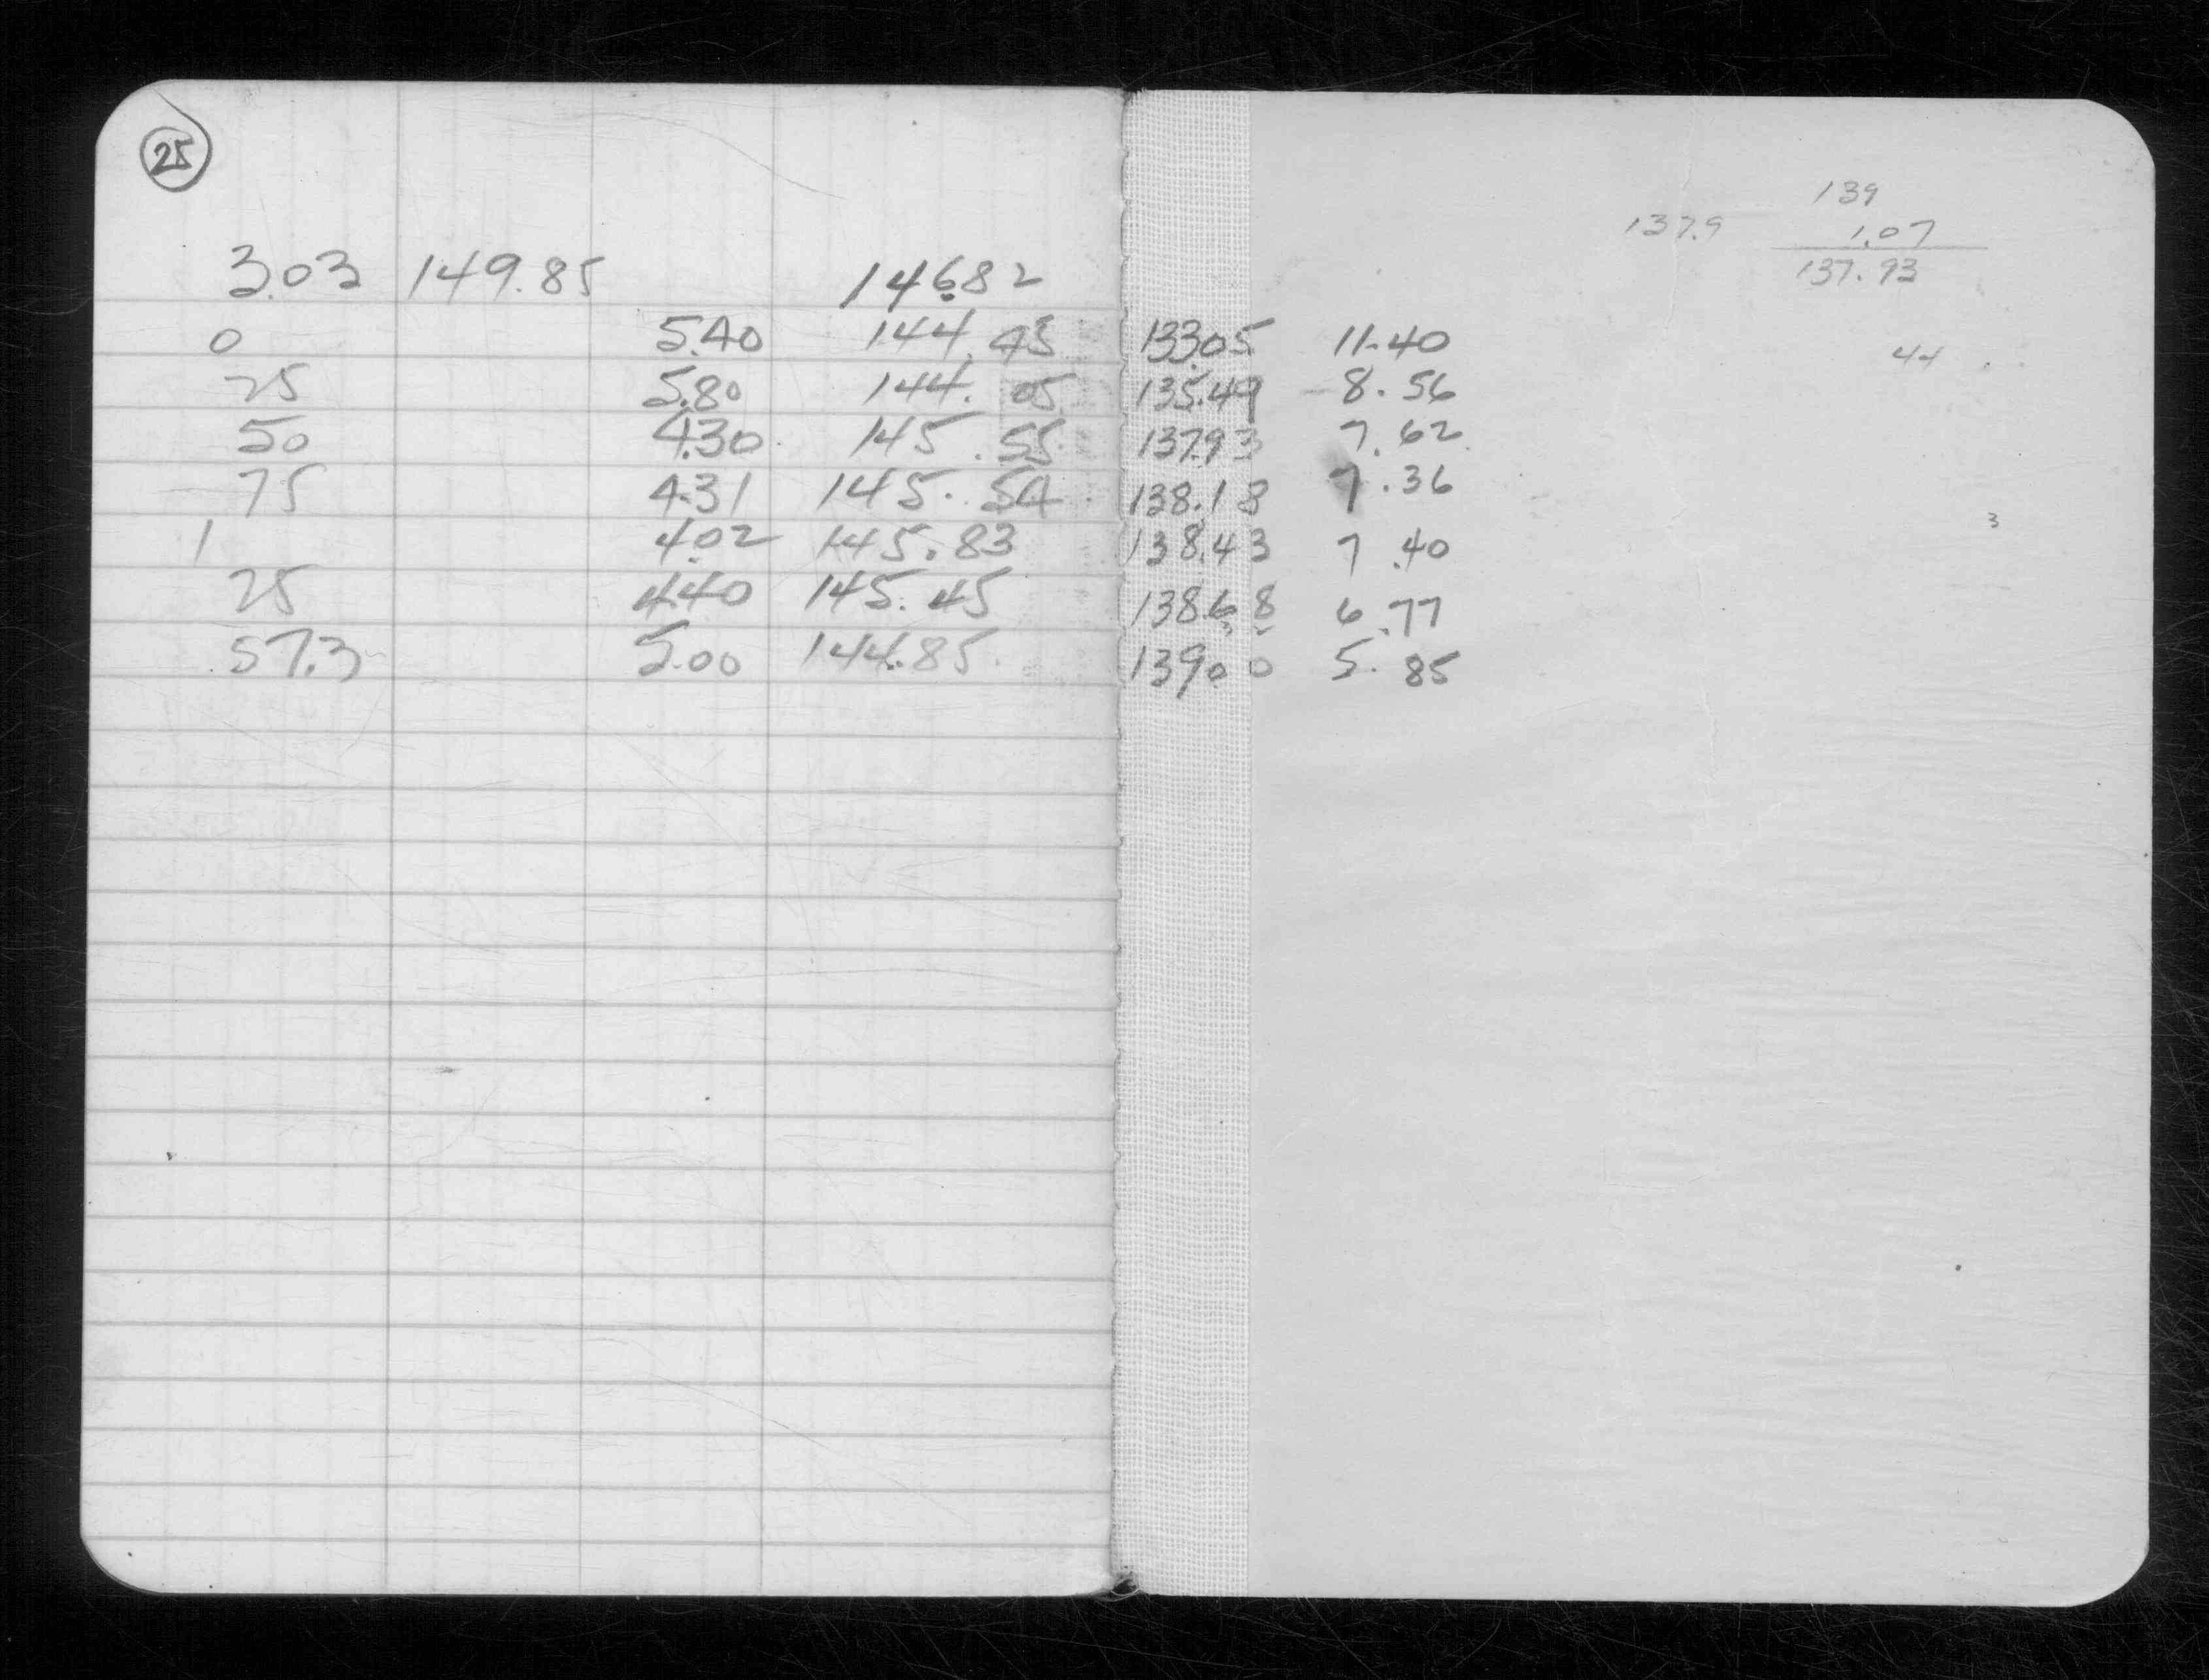 25
3.03 149.85 146.82
0 5.40 144.45 133.05 11.40
25 5.80 144.05 135.49 8.56
50 4.30 145.55 137.93 7.62
75 4.31 145.54 138.18 7.36
1 4.02 145.83 138.43 7.40
25 4.40 145.45 138.68 6.77
57.3 5.00 144.85 139.00 5.85
139
137.9 1.07
137.93
44
3